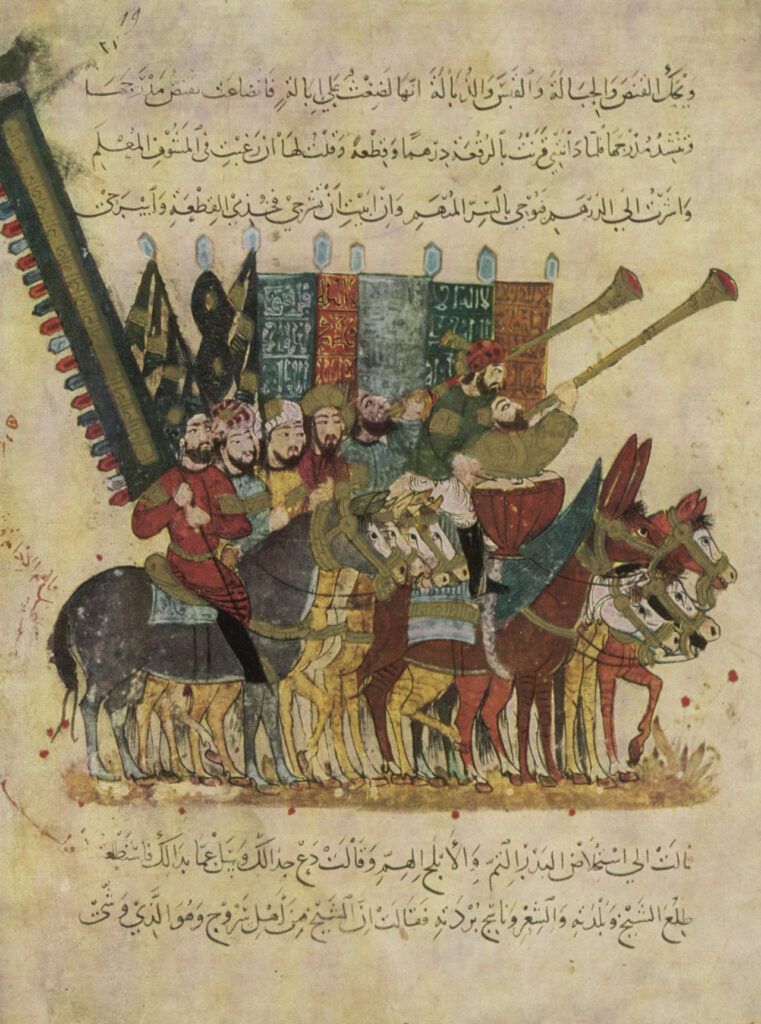 19
٢١
ويحك القنص والحبالة والقبس والذبالة انها لضغث على ابالة فانصاعت تقتص مدرجها
وتنشد مدرجها فلما دانتني قرنت بالرقعة درهما وقطعة وقلت لها ان رغبت في المشوف المعلم
واشرت الى الدرهم فبوحي بالسر المبهم وان ابيت ان تشرحي فخذي القطعة واسرحي
مالت الى استخلاص البدر التم والابلج الهم وقالت دع جدالك وسل عما بدا لك
طلع الشيخ وبلدته والشعر وناسج بردته فقالت ان الشيخ من اهل سروج وهو الذي وشى